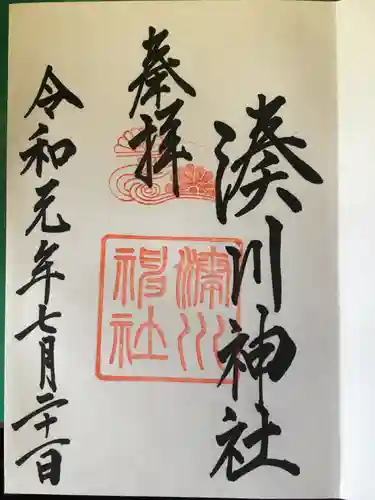 湊川神社
奉拝
湊川神社
令和元年七月二十一日